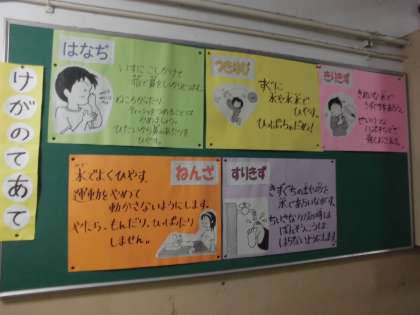 けがのてあて
はなぢ
いすに こしかけて
指で鼻をしっかりとつまむ。
ねころがったり
ティッシュをつめることは
やめましょう。
ひたいから鼻のあたりを
ひやす。
つきゆび
すぐに
水や氷水で
ひやす。
ひっぱっちゃだめ!
きりきず
きれいな水で
ねんざ
氷でよくひやす
運動をやめて
動かさないようにします。
やたら、もんだり、ひっぱったり
しません。
すりきず
きずぐちのまわりを
水であらいながす。
ちいさなきずの時は
ばんそうこうは
はらないようにします